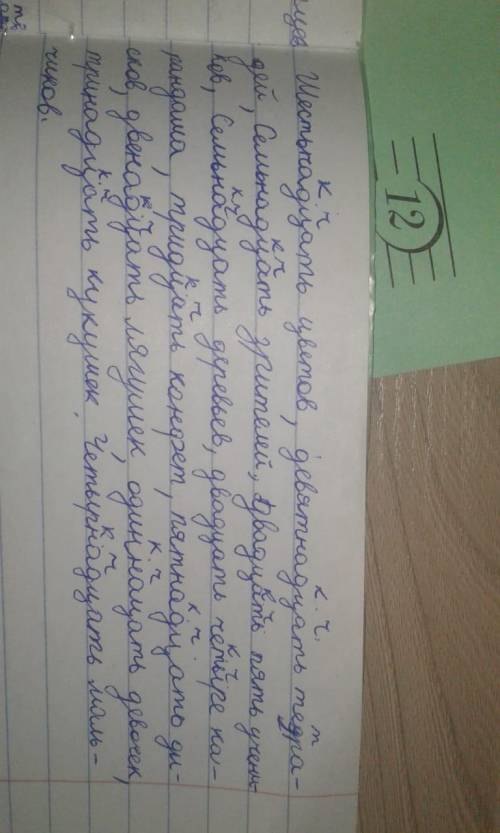 12
к. ч. к. ч. т
Шестьнадцать цветов, девятнадцать тедра-
к ч к ч
дей, Семьнадцать зрителей, двадцать пять учени-
к ч к ч
ков, Семьнадцать деревьев, двадцать четыре ка-
к ч к. ч.
рандаша, тридцать конфет, пятнадцать ди-
к ч к. ч
сков, двенадцать лягушек, одиннацать девочек,
к. ч к. ч
тринадцать кукушек, Четырнадцать маль-
чиков.